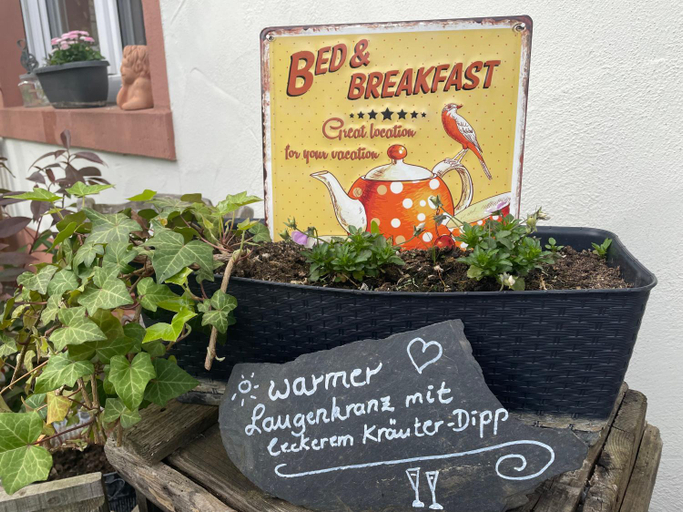 BED &
BREAKFAST
Great location
for your vacation
warmer
Laugenkranz mit
leckerem Kräuter-Dipp